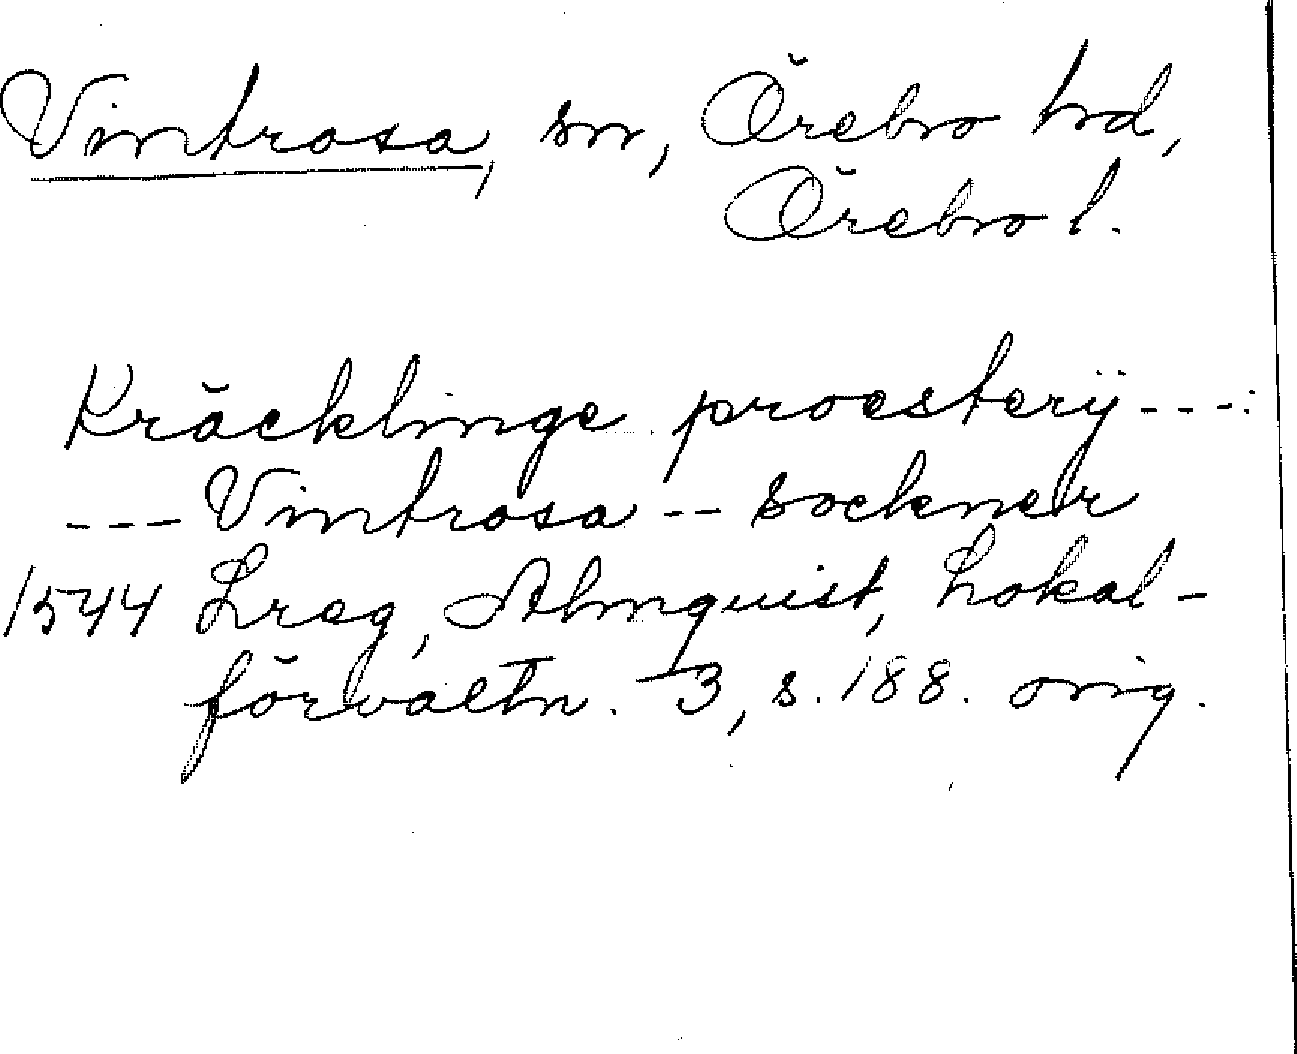 Vintrosa, sn, Örebro hd,
Örebro l.
Kräcklinge proesterÿ---:
--- Vintrosa -- sockner
1544 Lreg, Almquist, Lokal-
förvaltn. 3, s. 188. orig.